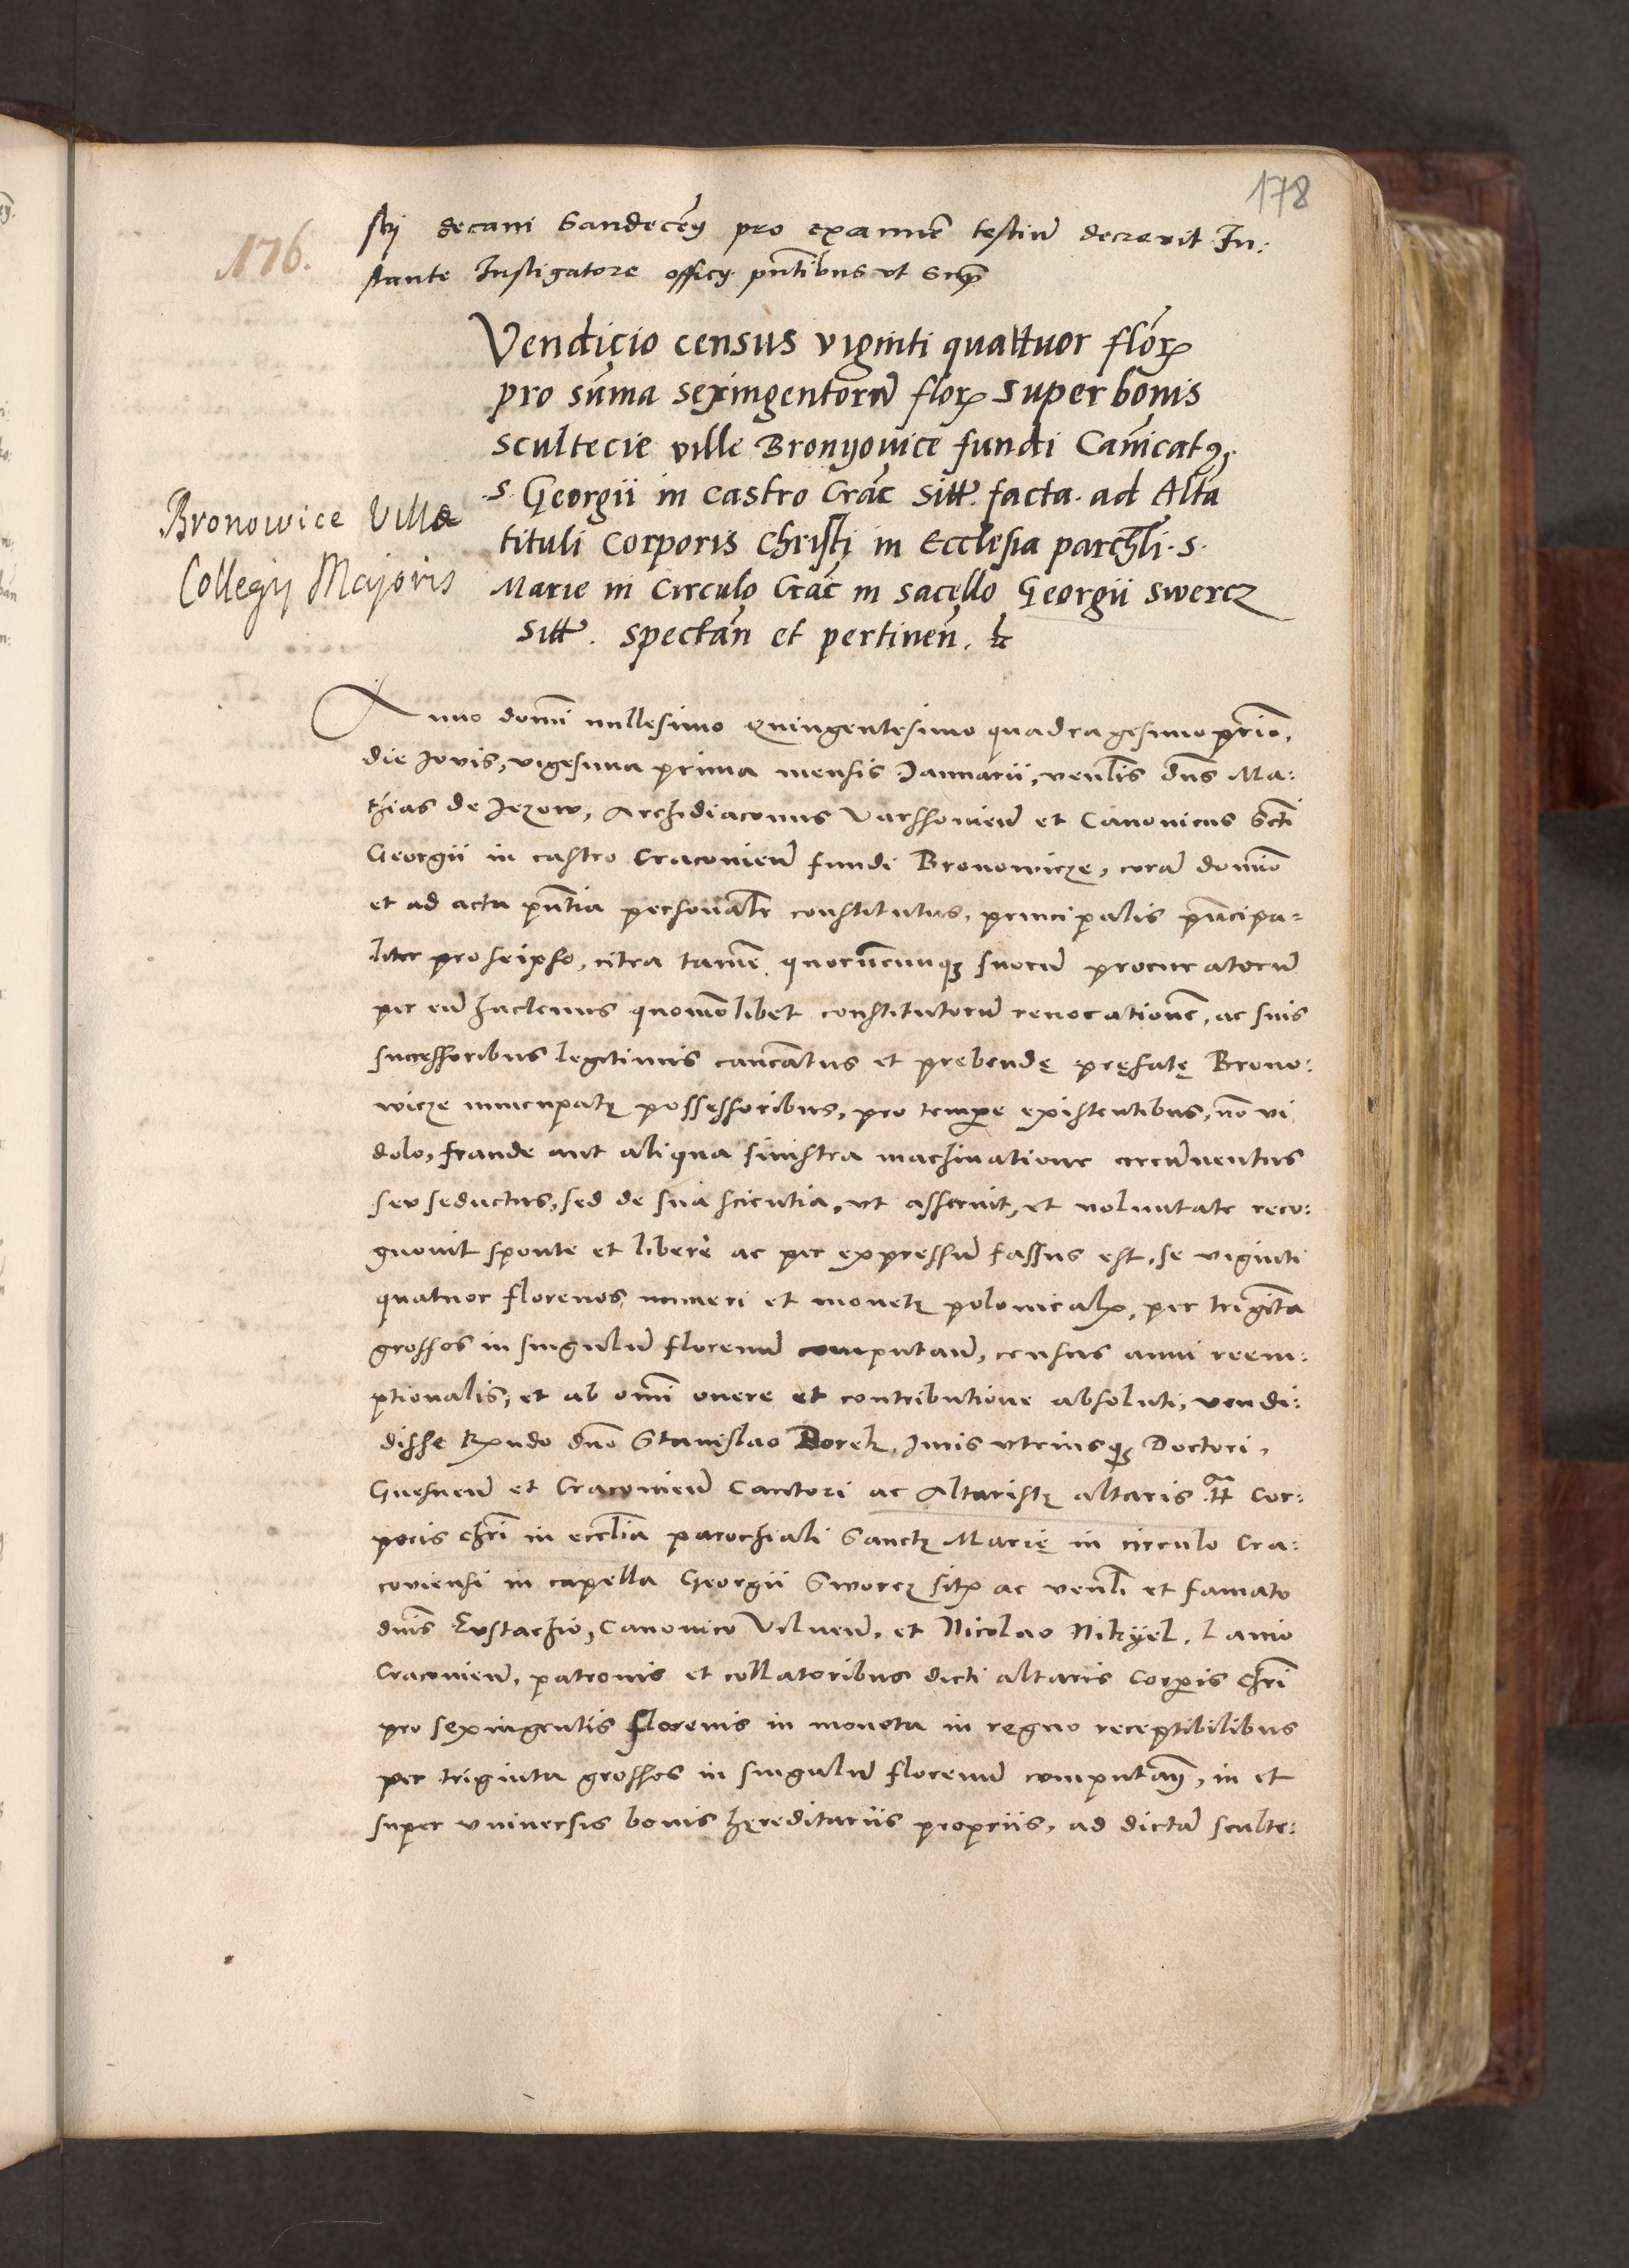 178
176.
decani Sandecen̄ pro examine testiū decrevit In:
stante Instigatore officÿ pn̄tibus ut sup̄
Vendicio census viginti quattuor florꝝ
pro sūma sexingentorū florꝝ super bonis
scultecie ville Bronyovice fundi Can̄icatꝯ
.S. Georgii in castro Crac̄ sitt. facta. ad Alta
tituli Corporis Christi in Ecclesia parchli. s.
Marie in Circulo Crac̄ in sacello Georgii Swercz
sitt. spectan̄ et pertinen̄. &c
Bronowice Villa
Collegÿ Majoris
Anno domī millesimo Quingentesimo quadragesimo prīo,
die Jovis, vigesima prima mensis Januarii, venl̄is dn̄s Ma:
thias de Jezow, Archidiaconus Varssovien̄ et Canonicus Sctī
Georgii in castro Cracovien̄ fundi Bronowicze, corā domīo
et ad acta pn̄tia personalr̄ constitutus, principalis pn̄cipa=
liter pro seipso, citra tamē quorūcunqꝫ suorū procuratorū
per eū hactenus quomōlibet constitutorū revocationē, ac suis
successoribus legitimis canc̄atus et prebendę pręfatę Brono:
wicze nuncupatę possessoribus, pro tempe existentibus, nō vi
dolo, fraude aut aliqua sinistra machinatione circūventus
seu seductus, sed de sua scientia, ut asseruit, et voluntate reco:
gnovit sponte et liberè ac per expressū fassus est, se viginti
quatuor florenos, numeri et monetę polonicalꝭ, per trigīta
grossos in singulū florenū computan̄, census annui reem:
ptionalis, et ab omī onere et contributione absoluti, vendi:
disse Rx̄ndo dn̄o Stanislao Borek, Juris utriusqꝫ Doctori,
Gnesnen̄ et Cracovien̄ Cantori ac Altaristę altaris tt̄ Cor:
poris Chrī in ecclīa parochiali Sanctę Marię in circulo Cra:
coviensi in capella Georgii Sworcz sitꝭ ac venl̄i et famato
dn̄is Eustachio, Canonico Vilnen̄, et Nicolao Nikÿel, Lanio
Cracovien̄, patronis et collatoribus dicti altaris Corp̄ris Chrī
pro sexingentis florenis in moneta in regno receptibilibus
per triginta grossos in singulū florenū computan̄, in et
super universis bonis hęreditariis propriis, ad dictā sculte: